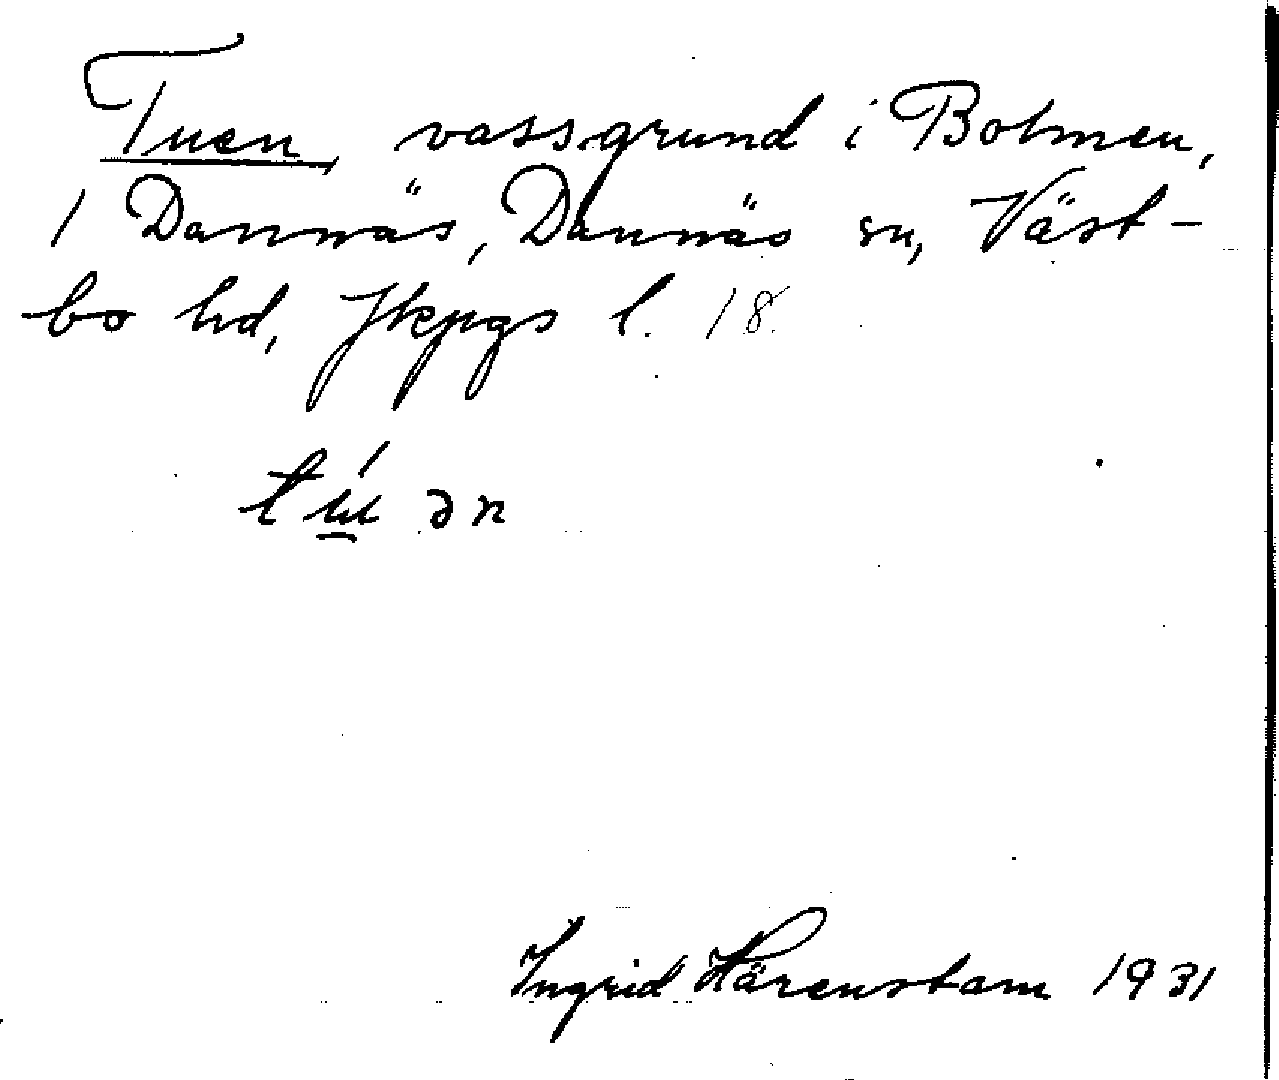 Tuen, vassgrund i Bolmen,
/ Dannäs, Dannäs sn, Väst-
bo hd, Jkpgs l. 18.
tú̲ ən
Ingrid Härenstam 1931